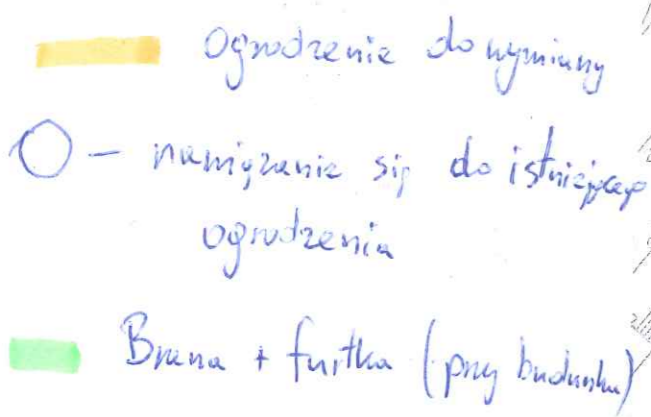 Ogrodzenie do wymiany
– nawiązanie się do istniejącego
ogrodzenia
Brama + furtka (przy budynku)